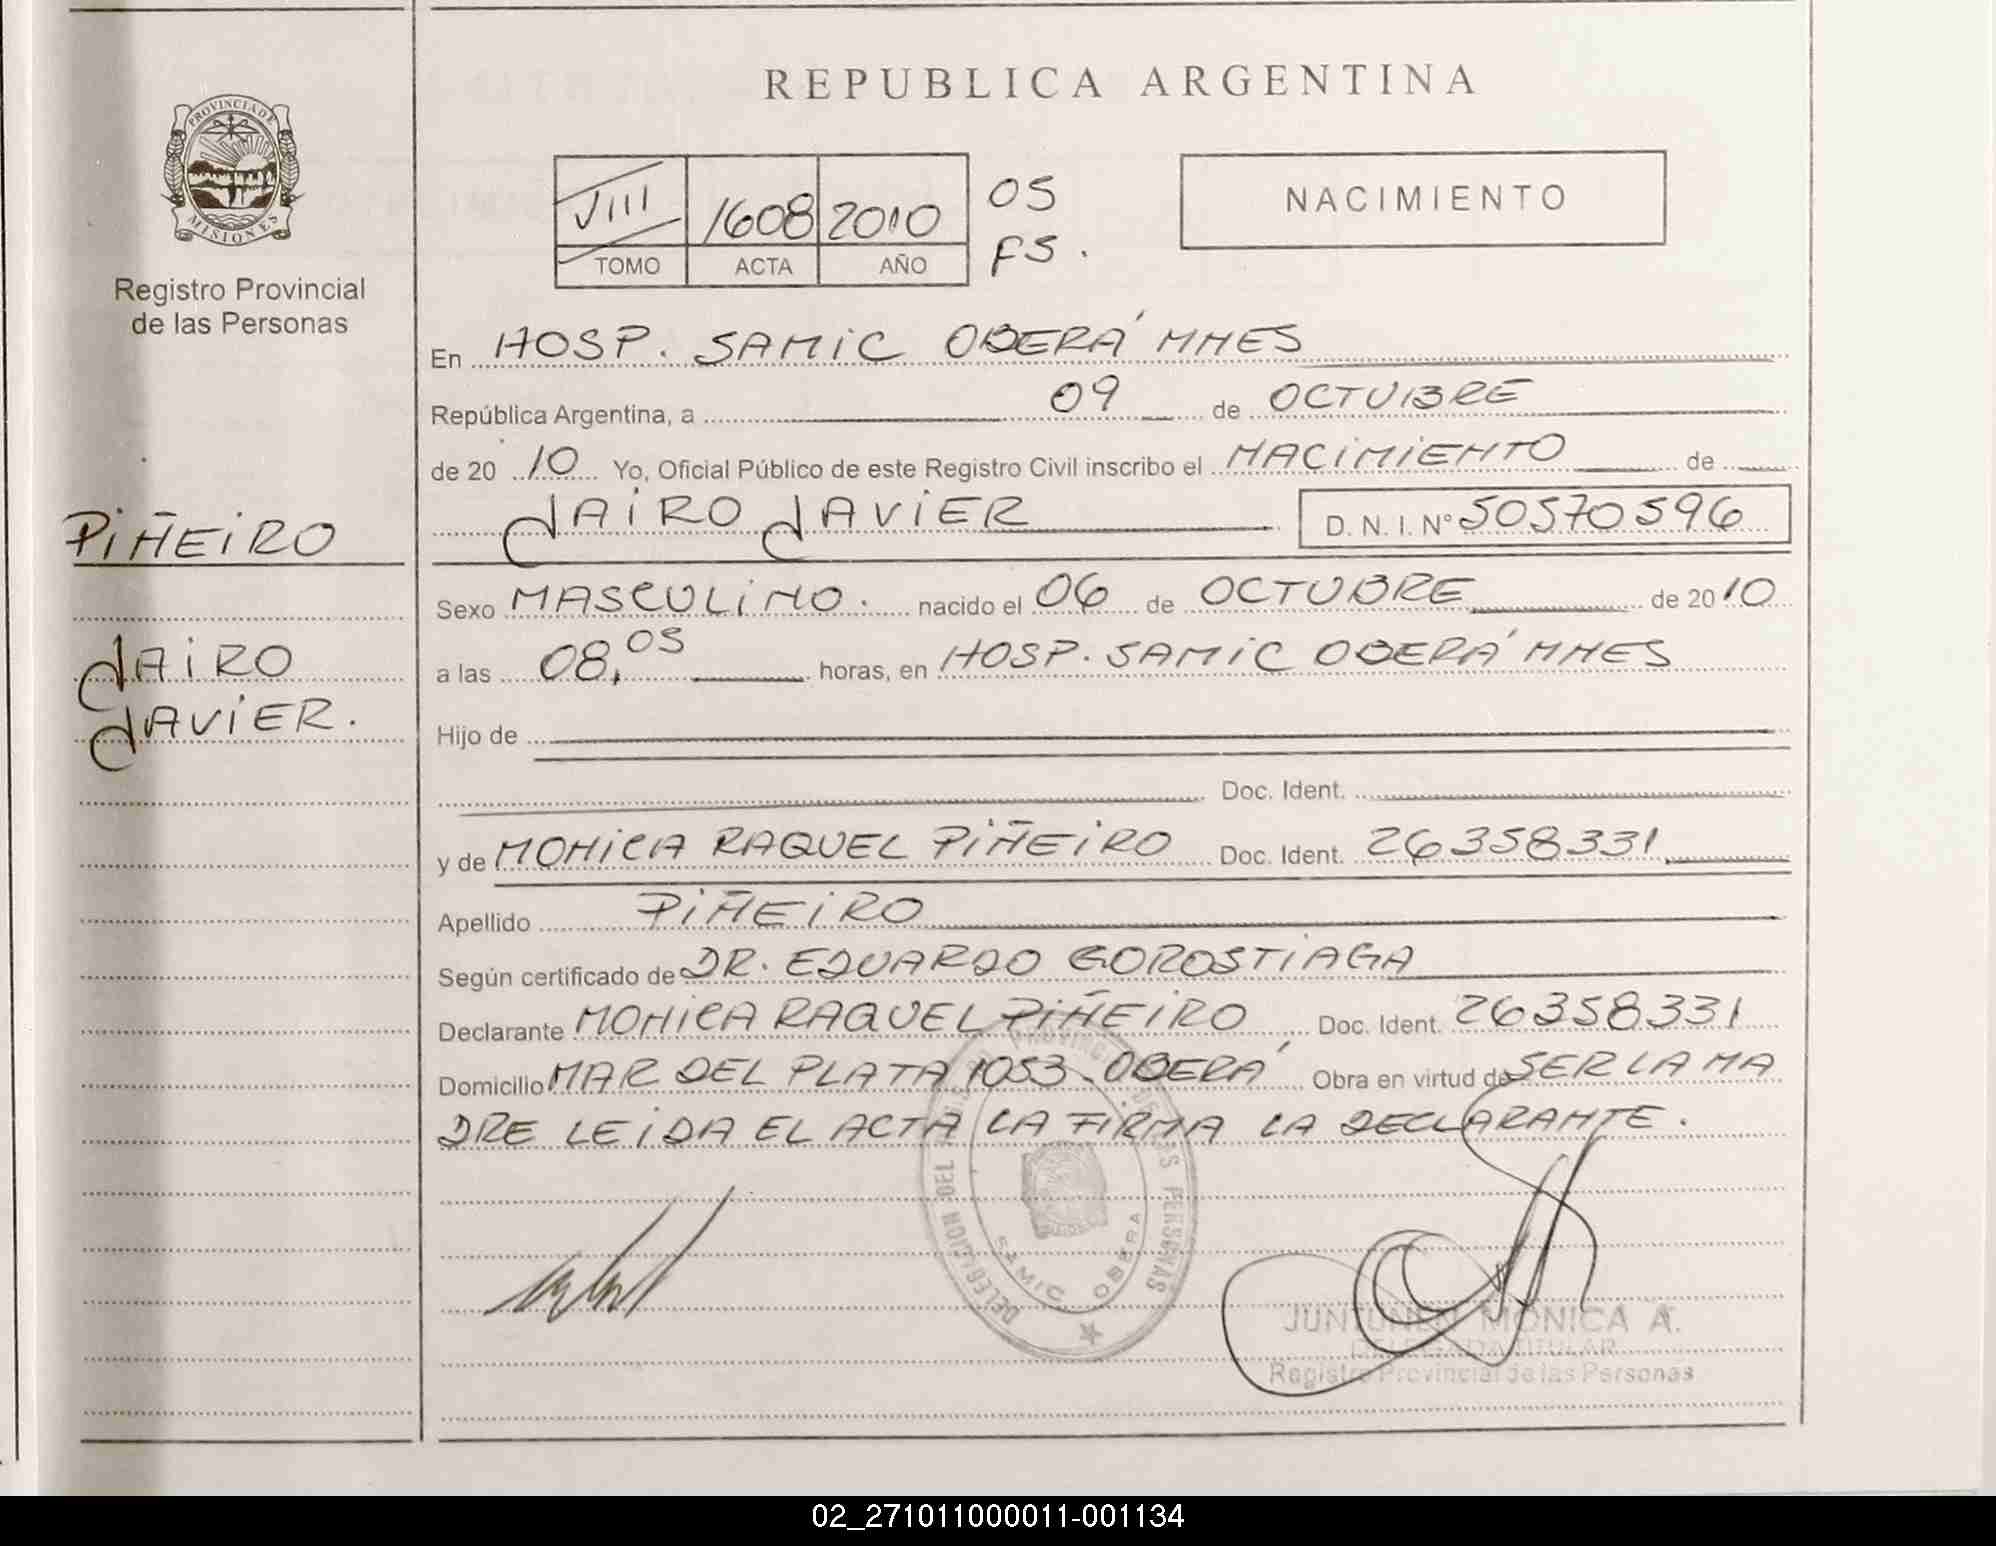 REPUBLICA ARGENTINA
PROVINCIA DE
MISIONES
Registro Provincial
de las Personas
VIII 1608 2010
TOMO ACTA AÑO
05
FS.
NACIMIENTO
En HOSP. SAMIC OBERÁ MNES
República Argentina, a 09 de OCTUBRE
de 20 10 Yo, Oficial Público de este Registro Civil inscribo el NACIMIENTO de
JAIRO JAVIER D. N. I. Nº 50570596
PIÑEIRO
JAIRO
JAVIER.
Sexo MASCULINO. nacido el 06 de OCTUBRE de 20 10
a las 08,05 horas, en HOSP. SAMIC OBERÁ MNES
Hijo de
Doc. Ident.
y de MONICA RAQUEL PIÑEIRO Doc. Ident. 26358331
Apellido PIÑEIRO
Según certificado de DR. EDUARDO GOROSTIAGA
Declarante MONICA RAQUEL PIÑEIRO Doc. Ident. 26358331
Domicilio MAR DEL PLATA 1053 - OBERÁ Obra en virtud de SER LA MA
DRE LEIDA EL ACTA LA FIRMA LA DECLARANTE.
DELEGACION DEL PROVINCIAL DE LAS PERSONAS
SAMIC OBERA
JUNTUNEN MONICA A.
DELEGADA TITULAR
Registro Provincial de las Personas
02_271011000011-001134